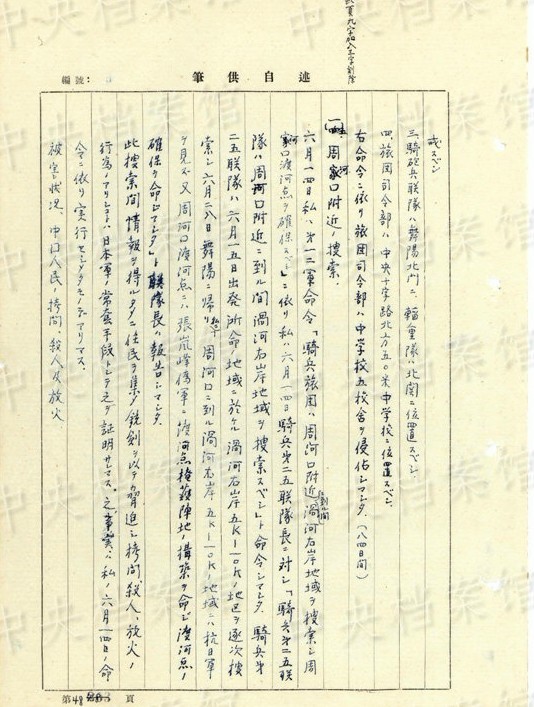 述自供筆
編號：
戒スベシ
三、騎砲兵联隊ハ舞陽北門ニ、輜重隊ハ北関ニ位置スベシ．
四、旅団司令部ハ中央十字路北方五〇米中学校ニ位置スベシ．
右命令ニ依リ旅団司令部ハ中学校五校舎ヲ侵佔シマシタ．（八四日間）
周家口附近ノ捜索．
六月一四日私ハ第一二軍命令「騎兵旅団ハ周河口附近ニ到ル間渦河右岸地域ヲ捜索シ周
家口渡河点ヲ確保スベシ」ニ依リ私ハ六月一四日騎兵第二五联隊長ニ対シ「騎兵第二五联
隊ハ周河口附近ニ到ル間渦河右岸地域ヲ捜索スベシ」ト命令シマシタ．騎兵第
二五联隊ハ六月一五日出発所命ノ地域ニ於ケル渦河右岸五K―一〇Kノ地区ヲ逐次捜
索シ六月二八日舞陽ニ帰リ私ニ「周河口ニ到ル渦河右岸五K―一〇Kノ地域ニハ抗日軍
ヲ見ズ、又周河口渡河点ニハ張嵐峰偽軍ニ渡河点掩護陣地ノ構築ヲ命ジ渡河点ノ
確保ヲ命ジマシタ」ト联隊長ハ報告シマシタ．
此捜索間情報ヲ得ルタメニ住民ヲ集メ銃剣ヲ以テ脅迫シ拷問、殺人、放火ノ
行為ノアリシコトハ日本軍ノ常套手段トシテ之ヲ証明サレマス。之事実ハ私ノ六月一四日ノ命
令ニ依リ実行セシメタモノデアリマス．
被害状況．中口人民ノ拷問、殺人及放火
第48頁